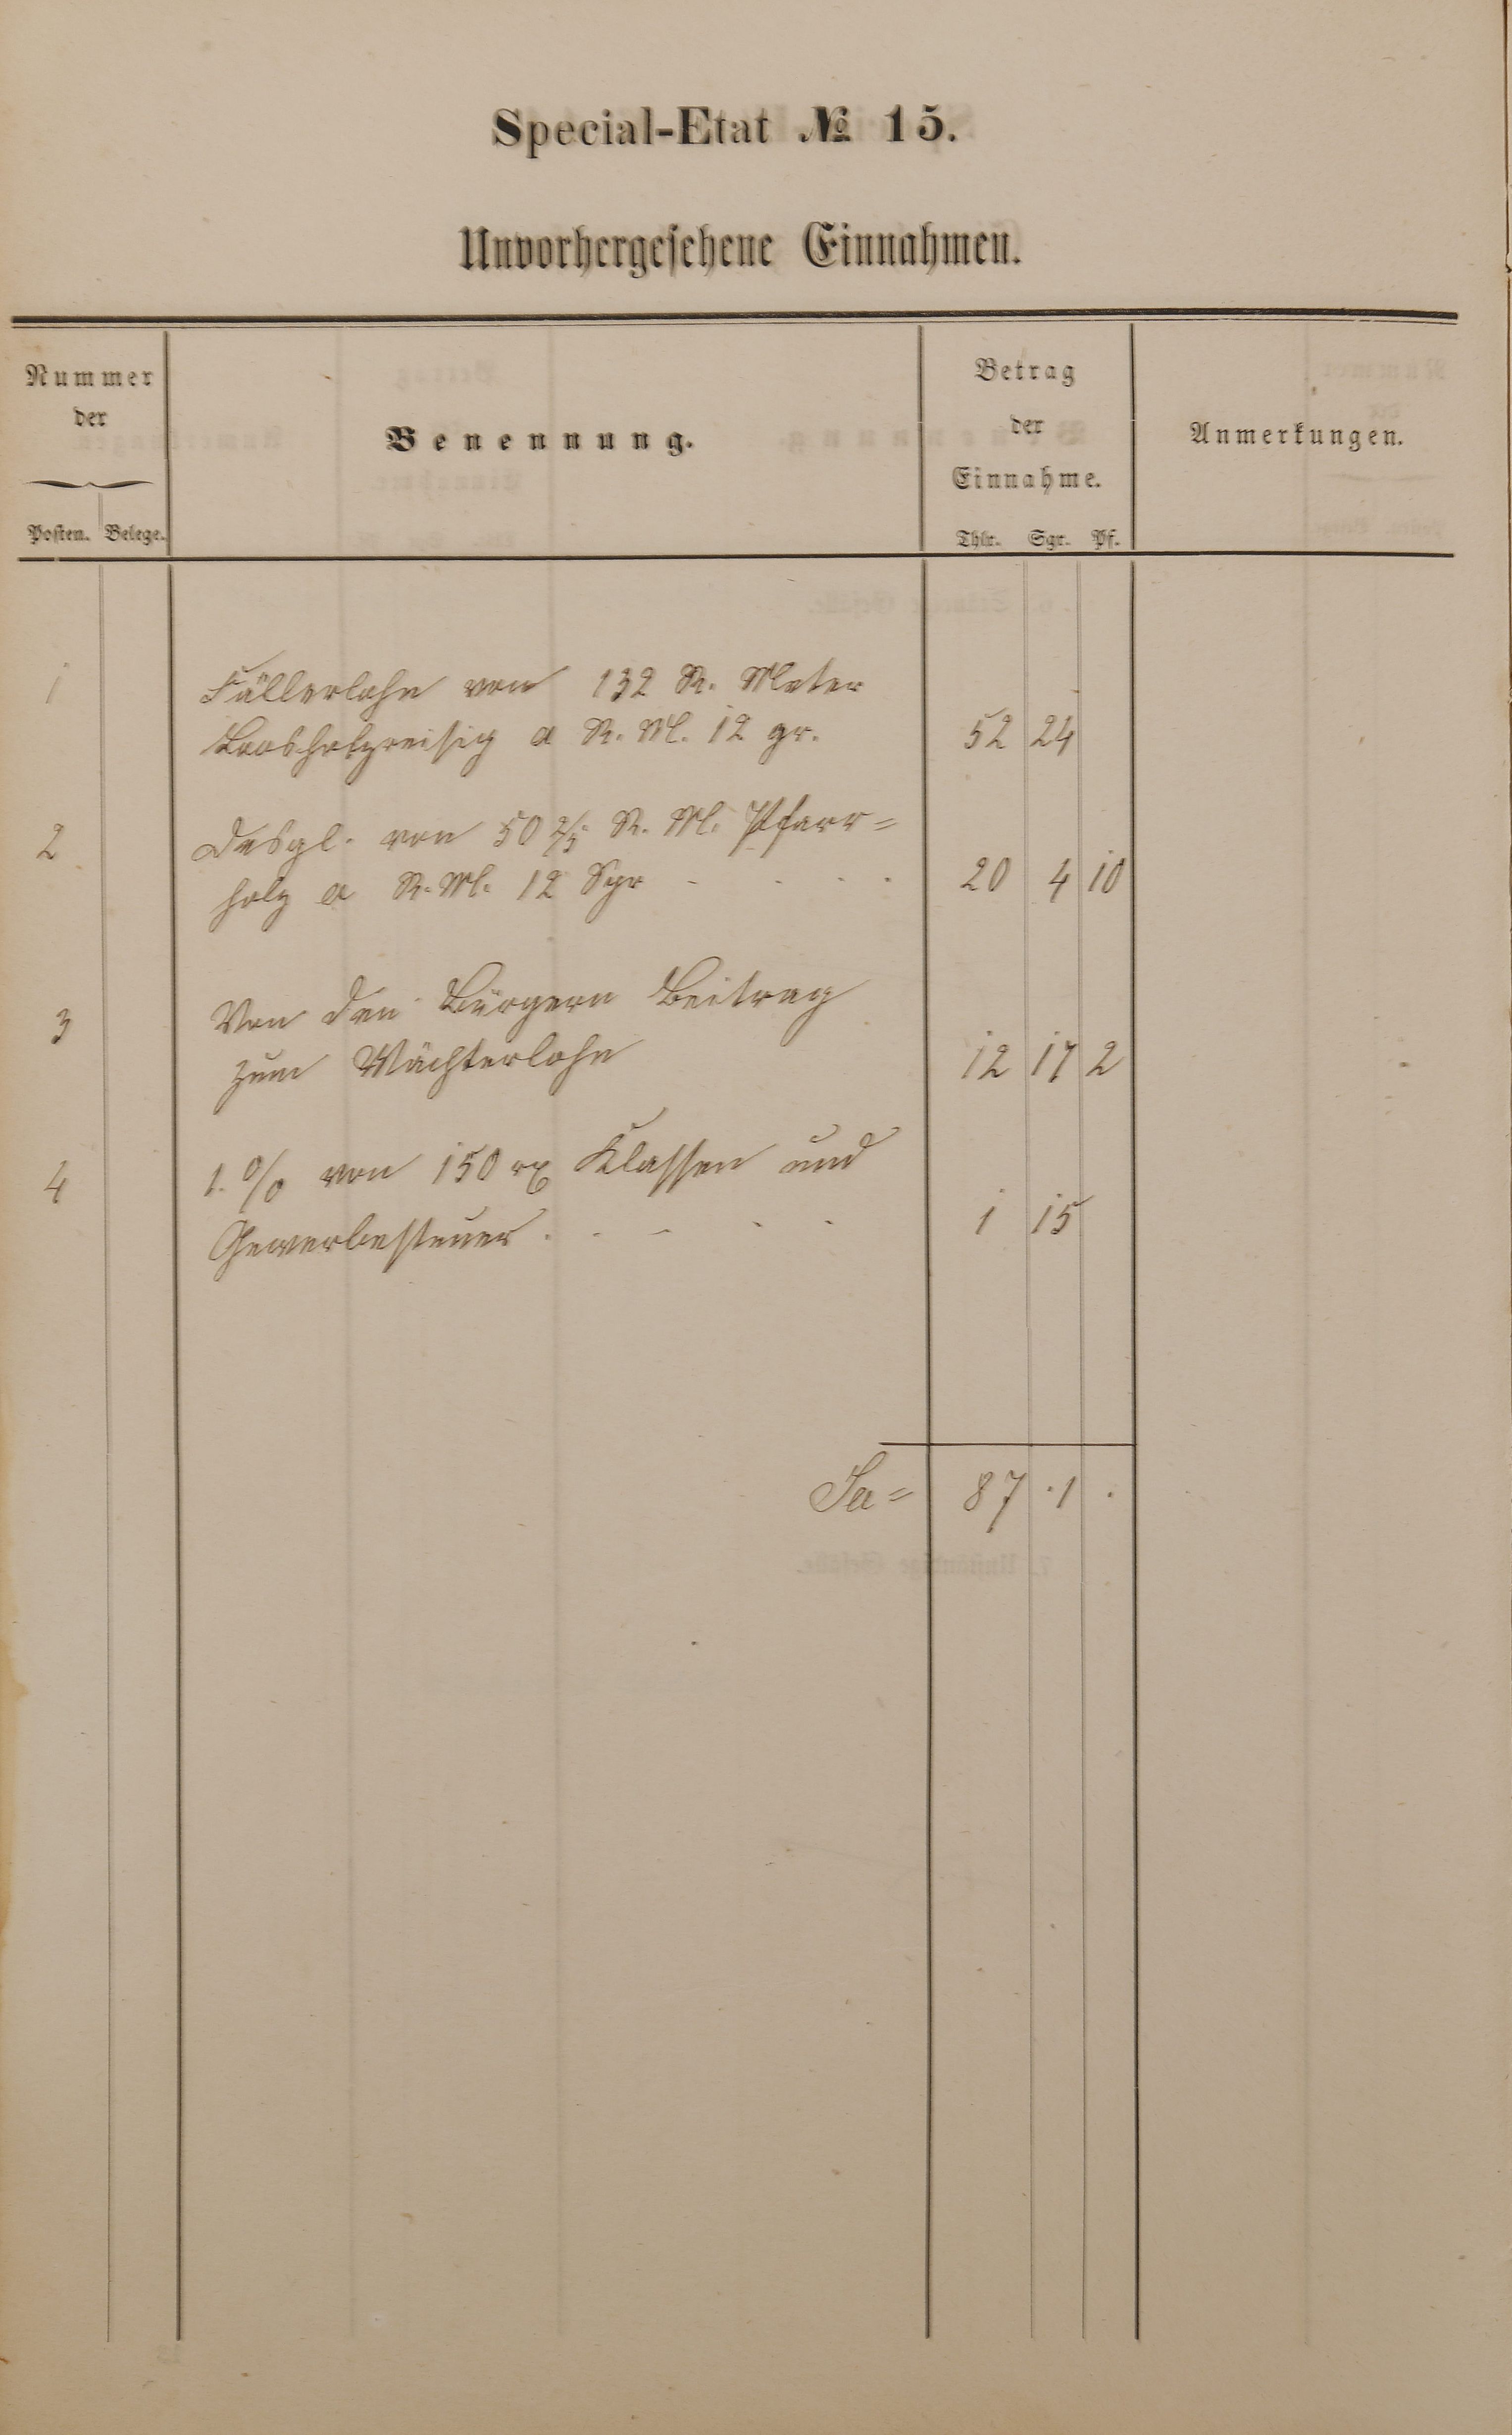 Special-Etat № 15.
Unvorhergesehene Einnahmen.
Nummer
der
Posten. Belege.
Benennung.
Betrag
der
Einnahme.
Thlr. Sgr. Pf.
Anmerkungen.
1 Fällerlohn von 132 R. Meter
Loosholzreisig a R. M. 12 gr. 52 24
2 Desgl. von 50 2/5 R. M. Pfarr=
holz a R. M. 12 Sgr - - - - 20 4 10
3 Von den Bürgern Beitrag
zum Wächterlohn 12 17 2
4 1. % von 150 rℓ Klassen und
Gewerbesteuer . . - - - 1 15
Sa = 87 . 1 .